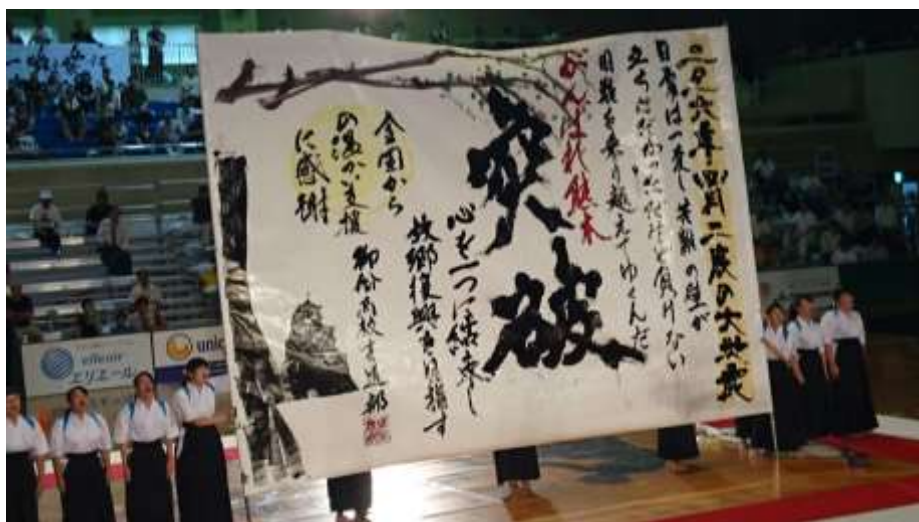 二〇一六年四月二度の大地震
日常は一変し苦難の壁が
立ちはだかった だけど負けない
困難を乗り越えてゆくんだ
がんばれ熊本
突破
心を一つに結束し
故郷復興を目指す
全国から
の温かい支援
に感謝
御船高校書道部
elleair
エリエール
unic